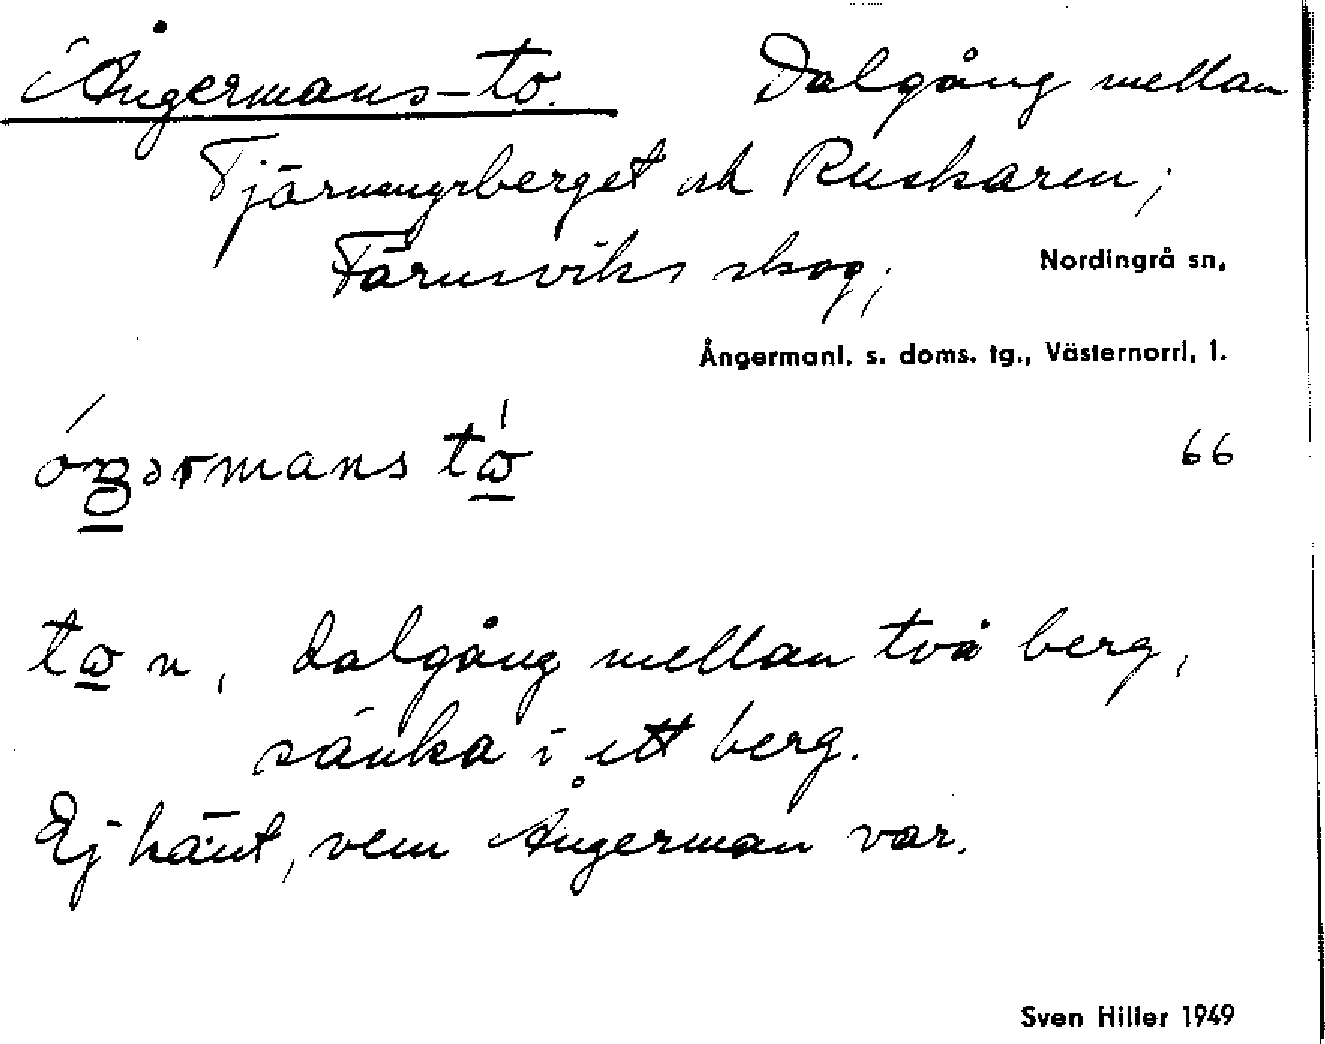 Ångermans-to. Dalgång mellan
Tjärnmyrberget och Ruskaren;
Färnsviks skog; Nordingrå sn,
Ångermanl. s. doms. tg., Västernorrl. l.
66
to n, dalgång mellan två berg,
sänka i ett berg.
Ej känt, vem Ångerman var.
Sven Hiller 1949